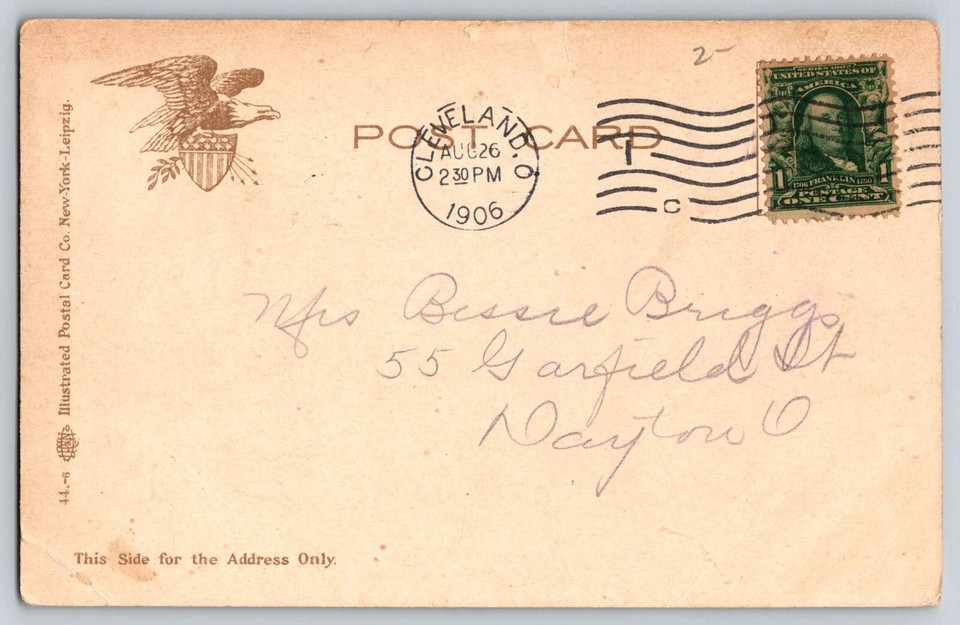 2-
POST CARD
CLEVELAND. O
AUG 26
2 30 PM
1906
C
SERIES 1902
UNITED STATES OF
AMERICA
1 1
1706 FRANKLIN 1790
POSTAGE
ONE CENT
Mrs Bessie Briggs
55 Garfield St
Dayton O
44.-6 Illustrated Postal Card Co. New-York-Leipzig.
This Side for the Address Only.